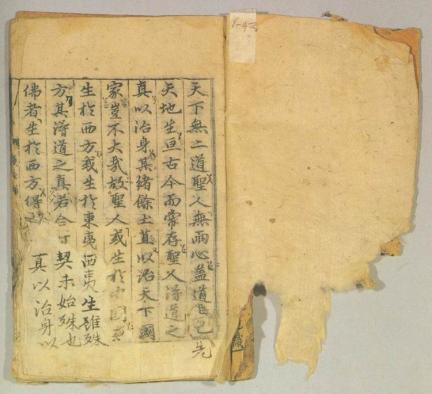 天下無二道聖人無兩心蓋道也已先
天地生亘古今而常存聖人得道之
真以治身其緒餘土苴以治天下國
家豈不大哉故聖人或生於中國或
生於西方或生於東夷西夷生雖殊
方其得道之真若合契未始殊也
佛者生於西方得
真以治身以